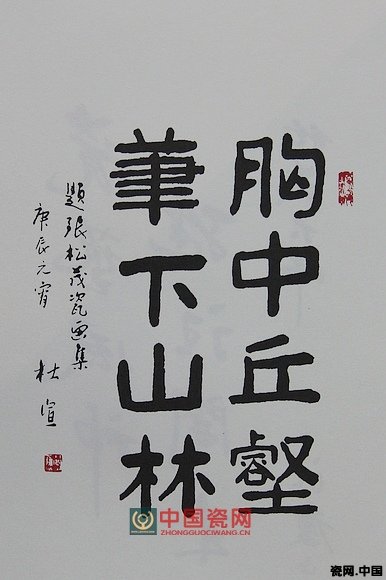 胸中丘壑
筆下山林
題張松茂瓷画集
庚辰元宵
杜宣
中国瓷网
ZHONGGUOCIWANG.CN
瓷网.中国